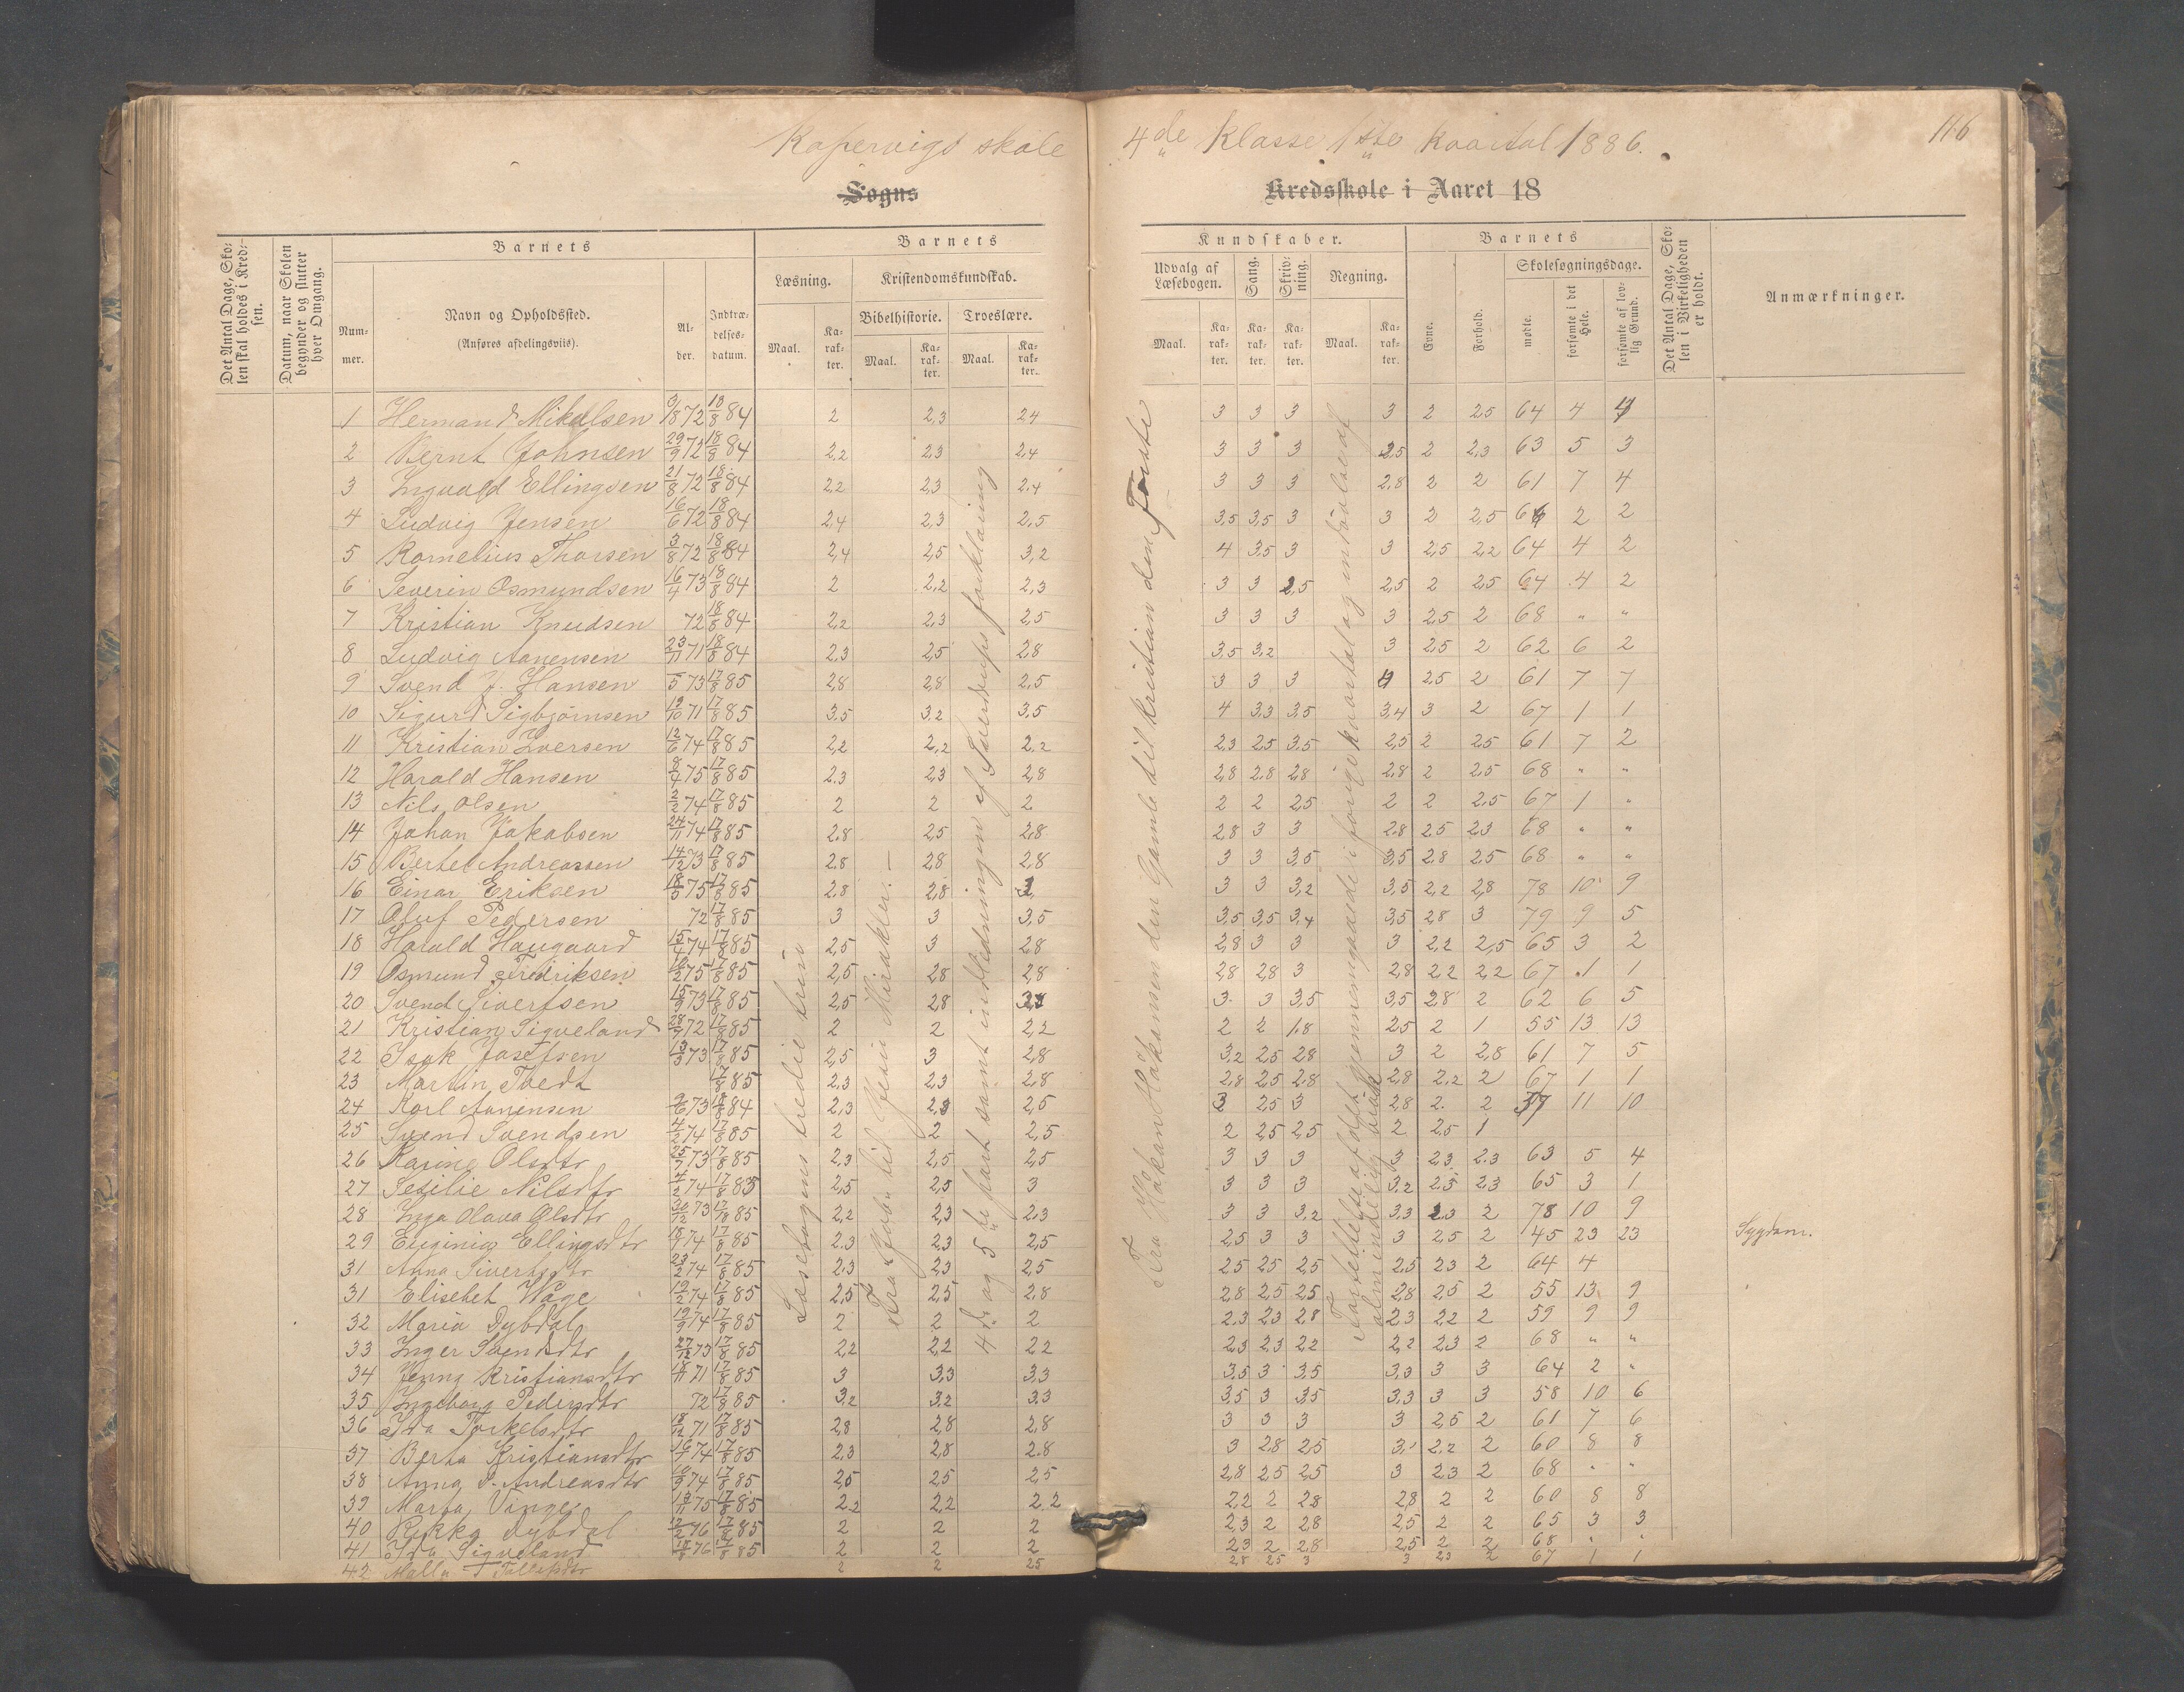 Kopervigs skole 4de Klasse 1ste kvartal 1886. 116
Sogns Kredsskole i Aaret 18
Det Antal Dage, Skolen skal holdes i Kredsen.
Datum, naar Skolen begynder og slutter hver Omgang.
Barnets
Nummer.
Navn og Opholdssted.
(Anføres afdelingsviis).
Alder.
Indtrædelsesdatum.
Barnets
Læsning.
Maal.
Karakter.
Kristendomskundskab.
Bibelhistorie.
Maal.
Karakter.
Troeslære.
Maal.
Karakter.
Kundskaber.
Udvalg af Læsebogen.
Maal.
Karakter.
Sang.
Karakter.
Skrivning.
Karakter.
Regning.
Maal.
Karakter.
Barnets
Evne.
Forhold.
Skolesøgningsdage.
mødte.
forsømte i det Hele.
forsømte af lovlig Grund.
Det Antal Dage, Skolen i Virkeligheden er holdt.
Anmærkninger.
1 Hermand Mikalsen 72 84 2 2,3 2,4 3 3 3 3 2 2,5 64 4 4
2 Bernt Johnsen 29/9 72 18/8 84 2,2 2,3 2,4 3 3 3 2,5 2 2,3 63 5 3
3 Ingvald Ellingsen 21/8 72 18/8 84 2,2 2,3 2,4 3 3 3 2,8 2 2 61 7 4
4 Ludvig Jensen 16/6 72 18/8 84 2,4 2,3 2,5 3,5 3,5 3 3 2 2,5 66 2 2
5 Kornelius Thorsen 3/8 72 18/8 84 2,4 2,5 3,2 4 3,5 3 3 2,5 2,2 64 4 2
6 Severin Osmundsen 16/4 73 18/8 84 2 2,2 2,3 3 3 2,5 2,5 2 2,5 64 4 2
7 Kristian Knudsen 72 18/8 84 2,2 2,3 2,5 3 3 3 3 2,5 2 68 " "
8 Ludvig Aanensen 23/11 71 18/8 84 2,3 2,5 2,8 3,5 3,2 3 2,5 2 62 6 2
9 Svend J. Hansen 73 17/8 85 2,8 2,8 2,5 3 3 3 4 2,5 2 61 7 7
10 Sigurd Sigbjørnsen 19/10 71 17/8 85 3,5 3,2 3,5 4 3,3 3,5 3,4 3 2 67 1 1
11 Kristian Iversen 12/6 74 17/8 85 2,2 2,2 2,2 2,3 2,5 3,5 2,5 2 2,5 61 7 2
12 Harald Hansen 8/4 75 17/8 85 2,3 2,3 2,8 2,8 2,8 2,8 2,8 2 2,5 68 " "
13 Nils Olsen 2/2 74 17/8 85 2 2 2 2 2 2,5 2 2 2,5 67 1 "
14 Johan Jakobsen 24/11 74 17/8 85 2,8 2,5 2,8 2,8 3 3 2,8 2,5 2,3 68 " "
15 Bertel Andreassen 14/12 73 17/8 85 2,8 2,8 2,8 3 3 3,5 3,5 2,8 2,5 68 " "
16 Einar Eriksen 75 17/8 85 2,8 2,8 3 3 3 3,2 3,5 2,2 2,8 78 10 9
17 Oluf Pedersen 72 17/8 85 3 3 3,5 3,5 3,5 3,4 3,5 2,8 3 79 9 5
18 Harald Haugaard 15/4 74 17/8 85 2,5 3 2,8 2,8 3 3 3 2,2 2,5 65 3 2
19 Osmund Fredriksen 75 17/8 85 2,5 2,8 2,8 2,8 2,8 3 2,8 2,2 2,2 67 1 1
20 Svend Sivertsen 15/9 73 17/8 85 2,5 2,8 3 3 3,5 3,5 2,8 2 62 6 5
21 Kristian Sigveland 72 17/8 85 2 2 2,2 2 2 1,8 2,5 2 1 55 13 13
22 Isak Josefsen 13/3 73 17/8 85 2,5 3 2,8 3,2 2,5 2,8 3 2 2,8 61 7 5
23 Martin Tvedt 17/8 85 2,3 2,3 2,8 2,8 2,5 2,8 2,8 2,2 2 67 1 1
24 Karl Aanensen 9/6 73 18/8 84 2,3 2,3 2,5 3 2,5 3 2,8 2 2 57 11 10
25 Svend Svendsen 4/2 74 17/8 85 2 2 2,5 2 2,5 2,5 2 2,5 1
26 Karine Olsdtr 25/7 73 17/8 85 2,3 2,5 2,5 3 3 3 3 2,3 2,3 63 5 4
27 Sesilie Nilsdtr 4/2 74 17/8 85 2,5 2,5 3 3 3 3 3,2 2,5 2,3 65 3 1
28 Inga Olava Olsdtr 73 85 2,2 2,3 2,3 3 3 3,2 3,3 2,3 2 78 10 9
29 Euginia Ellingsdtr 74 17/8 85 2,3 2,3 2,5 2,5 3 3 3 2,5 2 45 23 23 Sygdom.
31 Anna Sivertsdtr 23/2 74 17/8 85 2,3 2,3 2,5 2,5 2,5 2,5 2,5 2,3 2 64 4
31 Elisebet Wage 19/2 74 17/8 85 2,5 2,5 2,8 2,8 2,5 2,5 2,8 2,5 2 55 13 9
32 Maria Dybdal 19/9 74 17/8 85 2 2 2 2,3 2,3 2,8 2,3 2,2 2 59 9 9
33 Inger Svendsdtr 27/12 73 17/8 85 2,2 2,2 2,2 2,3 2,3 2,2 2,2 2,3 2 68 " "
34 Jenny Kristiansdtr 18/11 71 17/8 85 3 3,3 3,3 3,5 3 3,5 3,3 3 3 64 2 "
35 Ingeborg Pedersdtr 72 17/8 85 3,2 3,2 3,3 3,5 3 3,5 3,3 3 3 58 10 6
36 Ida Torkelsdtr 18/12 71 17/8 85 2,8 2,8 2,8 3 3 3 3 2,5 2 61 7 6
37 Berta Kristiansdtr 74 17/8 85 2,3 2,8 2,8 3 2,8 2,5 3 2,2 2 60 8 8
38 Anna S. Andreasdtr 74 17/8 85 2,5 2,5 2,5 2,8 2,5 2,5 3 2,3 2 68 " "
39 Marta Vinge 75 17/8 85 2,2 2,2 2,2 2,2 2 2,8 2,8 2 2 60 8 8
40 Rikka Dybdal 12/2 76 17/8 85 2 2 2 2,3 2 2,8 2,5 2 2 65 3 3
41 Ida Sigveland 76 17/8 85 2 2 2 2,3 2 2,8 2,5 2 2 68 " "
42 Malla Tollefsdtr 2 2 2,5 2,8 2,5 3 3 2,3 2 67 1 1
Læsebogens tredie trin
Fra Jesu Mirakler.
4de og 5te part samt indledningen af Sverdrups forklaring
Fra Håkan Håkonsen den Gamle til Kristian den Første
Fortsættelse af det gjennemgaaede i forrige kvartal og indøvelse af almindelig brøk